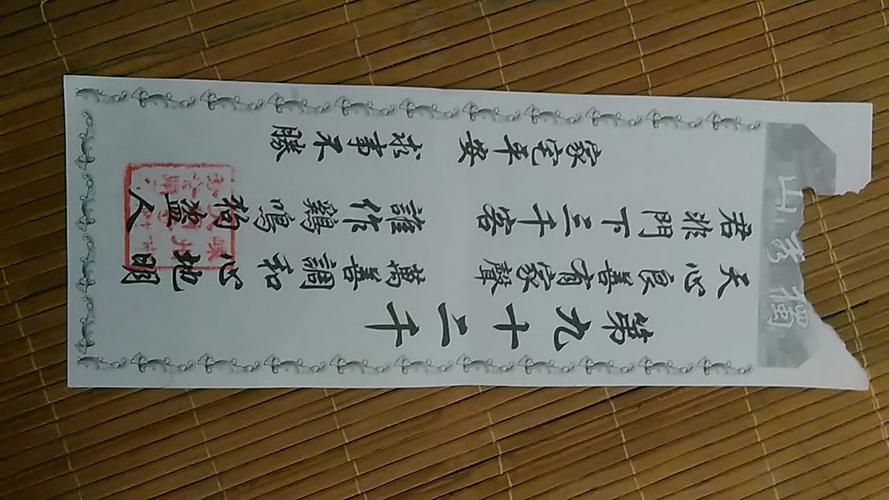 獨秀山
第九十二千
天心良善有家聲 萬善調和心地明
君非門下三千客 誰作鷄鳴狗盜人
家宅平安 求事不勝